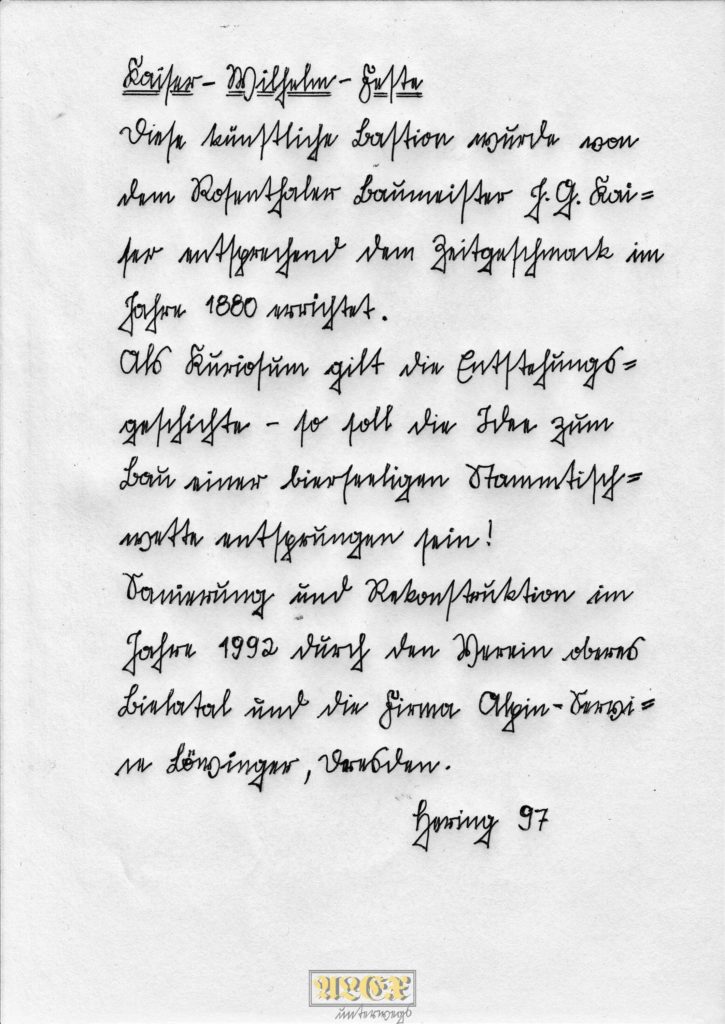 Kaiser-Wilhelm-Feste
Diese künstliche Bastion wurde von
dem Rosenthaler Baumeister J. G. Kai=
ser entsprechend dem Zeitgeschmack im
Jahre 1880 errichtet.
Als Kuriosum gilt die Entstehungs=
geschichte - so soll die Idee zum
Bau einer bierseeligen Stammtisch=
wette entsprungen sein!
Sanierung und Rekonstruktion im
Jahre 1992 durch den Verein oberes
Bielatal und die Firma Alpin-Servi=
ce Löwinger, Dresden.
Hering 97
ALEX
unterwegs